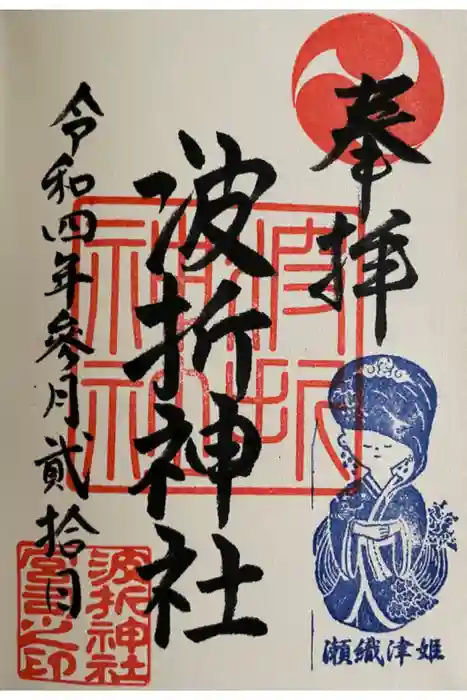 奉拝
波折神社
令和四年參月貳拾日
瀬織津姫
波折神社
宮司之印